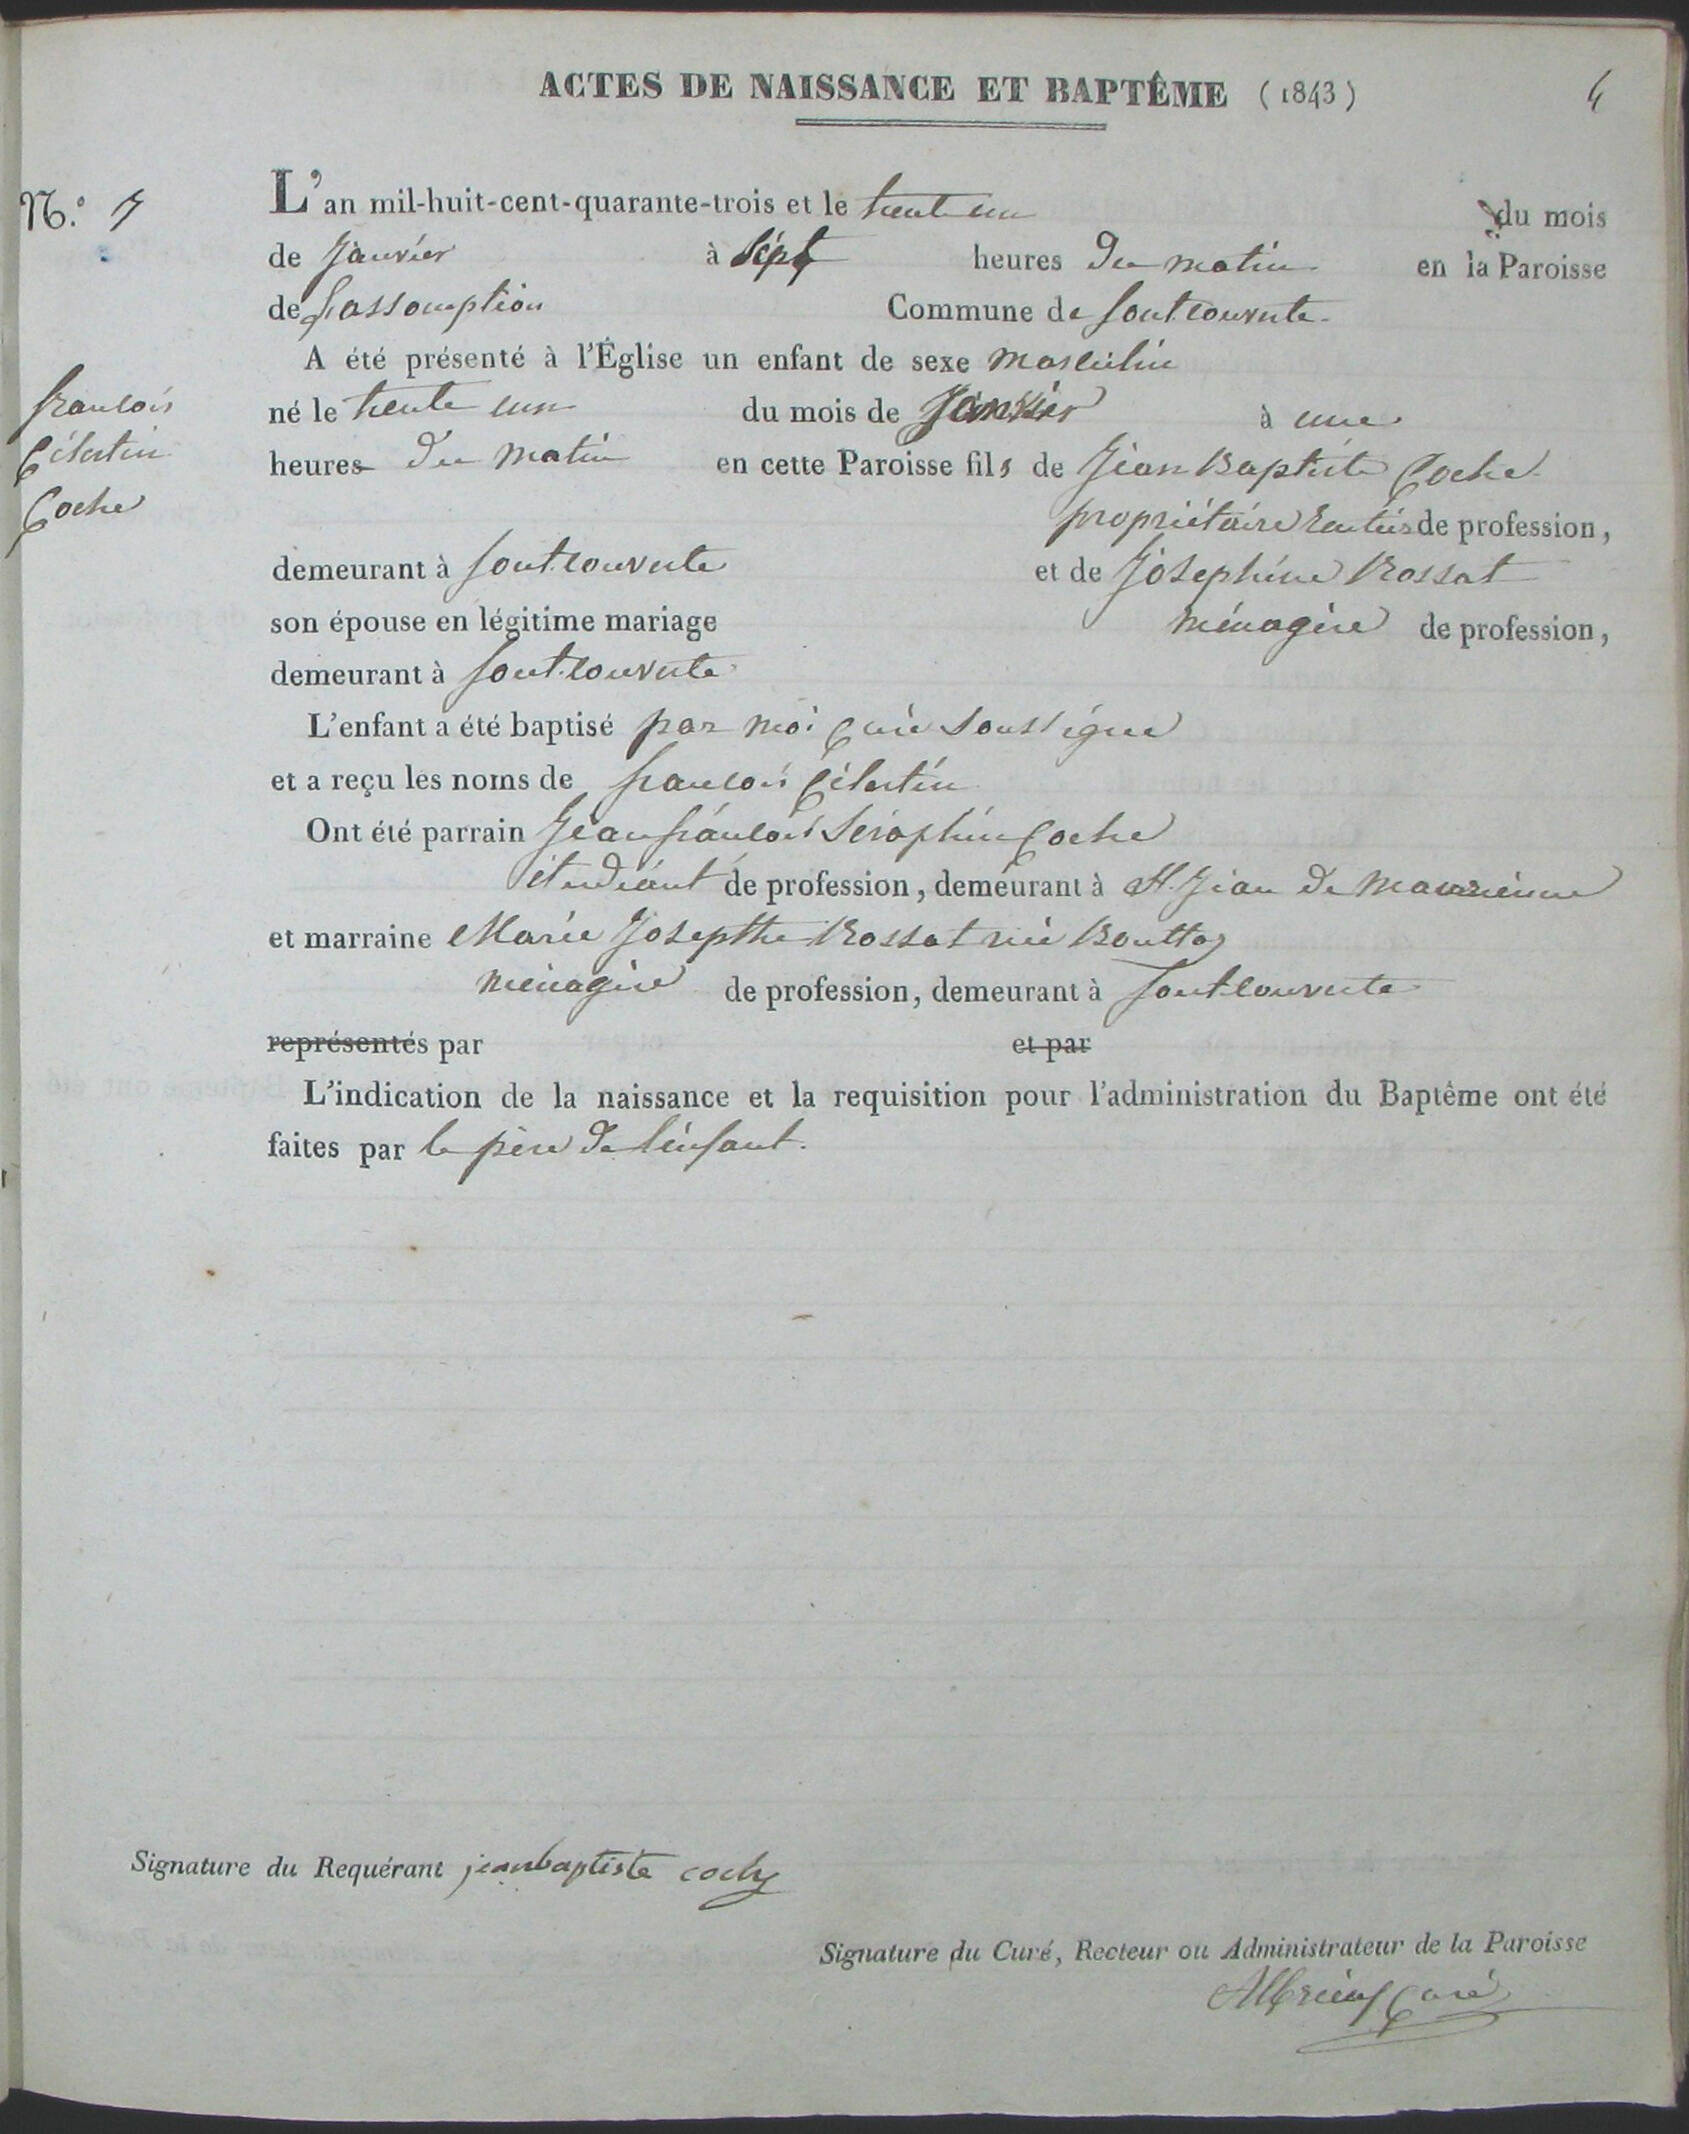 ACTES DE NAISSANCE ET BAPTÊME (1843)
4
N.º 7
L'an mil-huit-cent-quarante-trois et le trente un du mois
de Janvier à Sépt heures du matin en la Paroisse
de Lassomption Commune de fontcouverte
A été présenté à l'Église un enfant de sexe masculin
francois
Célestin
Coche
né le trente un du mois de Janvier à une
heures du matin en cette Paroisse fils de Jean Baptiste Coche
propriétaire rentier de profession,
demeurant à fontcouverte et de Joséphine Rossat
son épouse en légitime mariage ménagère de profession,
demeurant à fontcouverte
L'enfant a été baptisé par moi Curé soussigné
et a reçu les noms de francois Célestin
Ont été parrain Jean francois Séraphin Coche
étudiant de profession, demeurant à St. Jean de Maurienne
et marraine Marie Josepthe Rossat née Bouttaz
ménagère de profession, demeurant à fontcouverte
représentés par et par
L'indication de la naissance et la requisition pour l'administration du Baptême ont été
faites par le père de l'enfant.
Signature du Requérant jeanbaptiste coche
Signature du Curé, Recteur ou Administrateur de la Paroisse
Curé